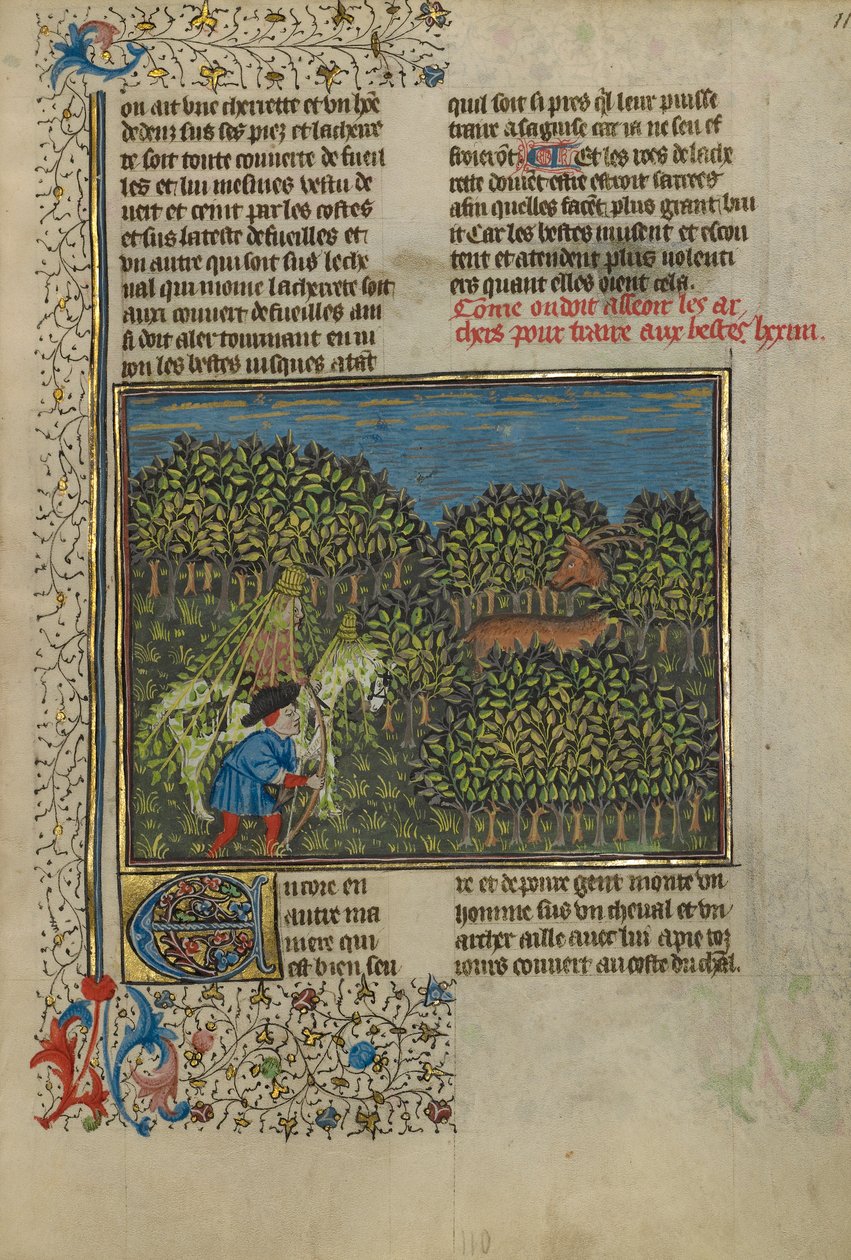 on ait vne cherrette et vn hõe
dedenz sus ses piez et la cherre
te soit toute couuerte de fueil
les et lui mesmes vestu de
uert et ceint par les costes
et sus la teste de fueilles et
vn autre qui soit sus le che
ual qui moine la cherrete soit
aux couuert de fueilles ain
si doit aler tournant en ui
ron les bestes iusques a tãt
quil soit si pres q̃l leur puisse
traire a sa guise car ia ne sen ef
froierõt Et les roes de la che
rette doiuẽt estre estroit sarrees
afin quelles facẽt plus grant bru
it Car les bestes musent et escou
tent et atendent plus uolenti
ers quant elles oient cela.
Cõme on doit asseoir les ar
chers pour traire aux bestes lxxiiii.
Encore en
autre ma
niere qui
est bien seu
re et de poure gent monte vn
homme sus vn cheual et vn
archer aille auec lui a pie toz
iours couuert au coste du cheual.
11
110